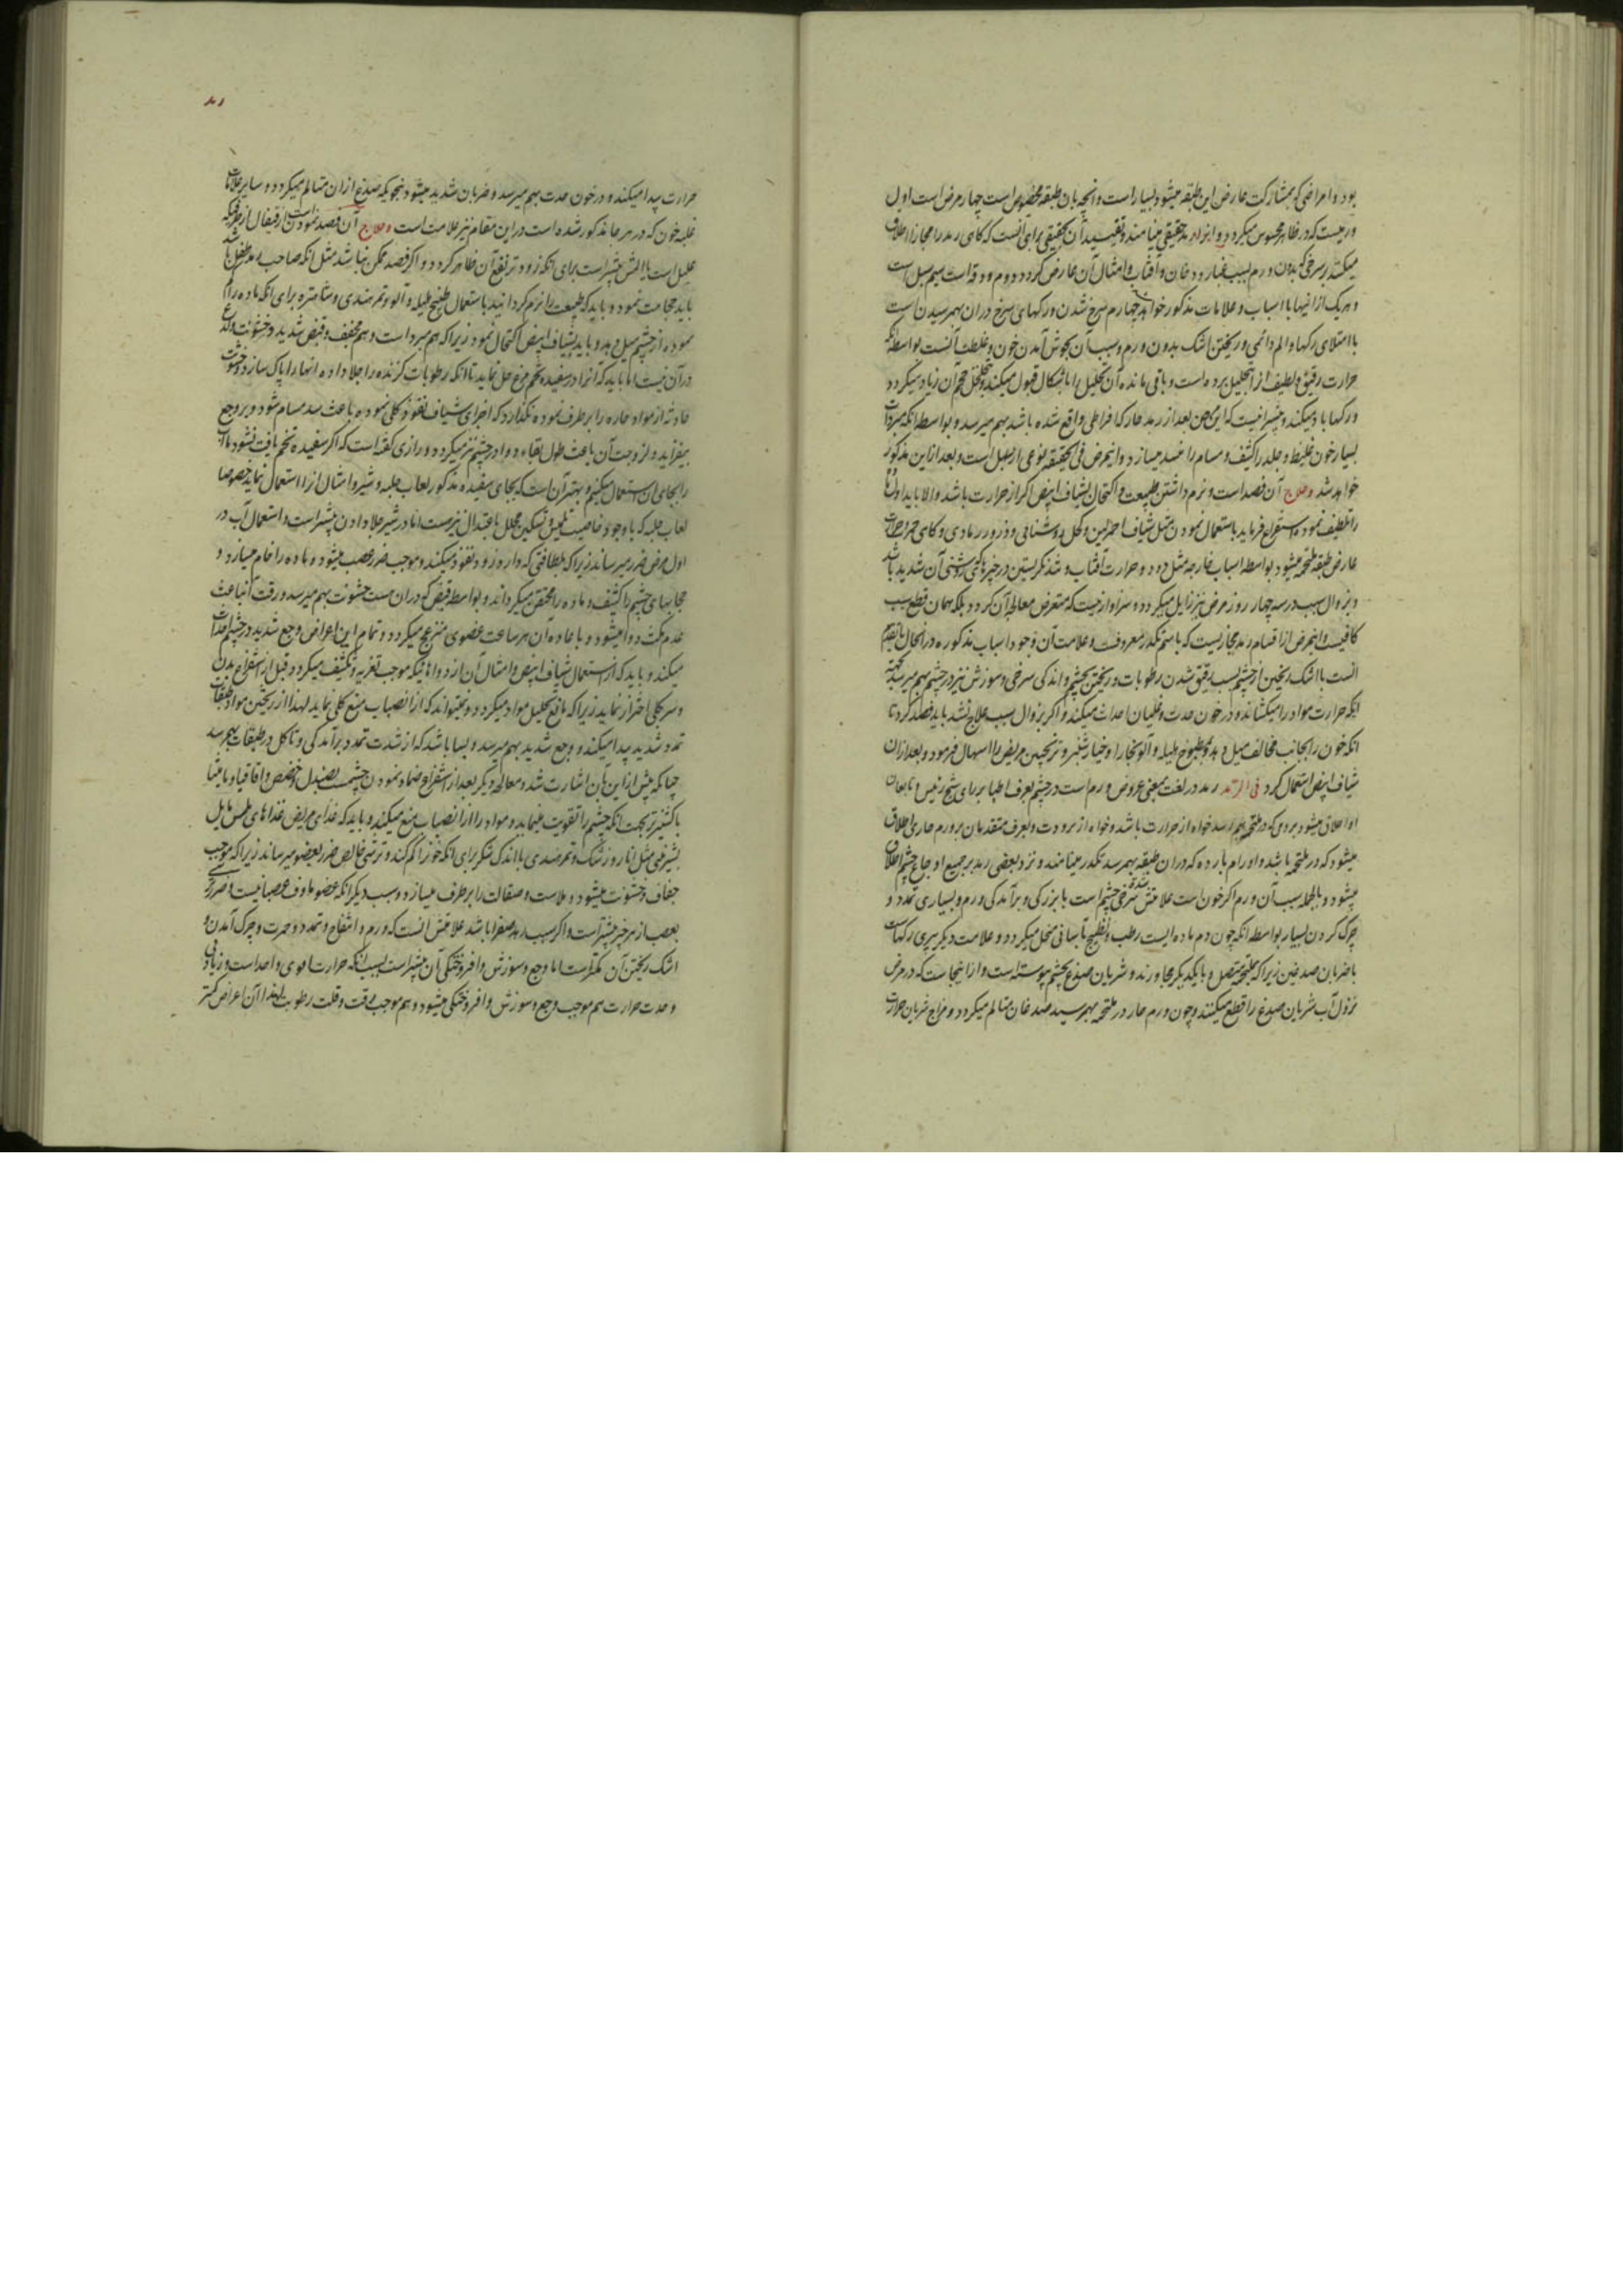 بود و امراضی که بمشارکت عارض این طبقه میشود بسیار است و آنچه بان طبقه مخصوص است چهار مرض است اول
ورمیست که در ظاهر محسوس میکردد و انرا رمد حقیقی مینامند و تقیید آن بحقیقی برای آنست که کاهی رمد را مجازا اطلاق
میکنند بر سرخی که بدون ورم بسبب غبار و دخان و آفتاب و امثال آن عارض کردد دوم ودقه است سیم سبل است
و هریک از اینها با اسباب و علامات مذکور خواهد چهارم سرخ شدن و رکهای سرخ دران بهمرسیدن است
با امتلای رکها و الم دائمی و ریختن اشک بدون ورم و سبب آن بجوش آمدن خون و غلظت آنست بواسطه آنکه
حرارت رقیق و لطیف آنرا بتحلیل برده است و باقی مانده آن تحلیل را باشکال قبول میکند و تخلخل حجم آن زیاد میکردد
و رکها باد میکند و بیشتر اینست که این مرض بعد از رمد حار که افراطی واقع شده باشد بهم میرسد و بواسطه آنکه مبردات
بسیار خون غلیظ و جلد را کثیف و مسام را منسد میسازد و اینمرض فی الحقیقه نوعی از سبل است و بعد ازین مذکور
خواهد شد و علاج آن فصد است و نرم داشتن طبیعت و اکتحال بشیاف ابیض اکر از حرارت باشد و الا باید اول ماده
را تلطیف نموده استفراغ فرماید باستعمال نمودن مثل شیاف احمر لین و کحل روشنائی و ذرور رمادی و کاهی حمره
عارض طبقه ملتحمه میشود بواسطه اسباب خارجه مثل دود و حرارت آفتاب و شد نکریستن در چیزهائی که روشنی آن شدید باشد
و بزوال سبب در سه چهار روز مرض نیز زایل میکردد و سزاوار نیست که متعرض معالجه آن کردد بلکه همان قطع سبب
کافیست و اینمرض از اقسام رمد مجازیست که باسم تکدر معروفست و علامت آن وجود اسباب مذکوره در انحال یا تقدیم
انست با اشک ریختن از چشم بسبب رقیق شدن رطوبات و ریختن بچشم و اندکی سرخی و سوزش نیز در چشم بهم میرسد بجهة
انکه حرارت مواد را میکشاند و در خون حدت و غلیان احداث میکند و اکر بزوال سبب علاج نشد باید فصد کرد تا
انکه خون را بجانب مخالف میل دهد و بمطبوخ هلیله و آلو بخارا و خیار شنبر و ترنجبین مریض را اسهال فرمود و بعد ازان
شیاف ابیض استعمال کرد فی الرمد رمد در لغت بمعنی عروض ورم است در چشم بعرف اطبا بر رای شیخ رئیس و تابعان
او اطلاق میشود بر ورمی که در ملتحمه بهم رسد خواه از حرارت باشد و خواه از برودت و بعرف متقدمان بر ورم حاری اطلاق
میشود که در ملتحمه باشد و اورام بارده که دران طبقه بهمرسد تکدر مینامند و نزد بعضی رمد بر جمیع اوجاع چشم اطلاق
میشود و بالجمله سبب آن ورم اکر خون است علامتش سرخی چشم است با بزرکی و برآمدکی ورم و بسیاری تمدد و
چرک کردن بسیار بواسطه انکه چون دم ماده ایست رطب و نضیج بآسانی منحل میکردد و علامت دیکر پری رکهاست
با ضربان صدغین زیرا که ملتحمه متصل و بایکدیکر مجاورند و شریان صدغ بچشم پیوسته است و از اینجاست که در مرض
نزول آب شریان صدغ را قطع میکنند و چون ورم حار در ملتحمه بهمرسید صدغان متالم میکردد و مزاج شریان حرارت
حرارت پیدا میکند و در خون حدت بهم میرسد و ضربان شدید میشود بنحویکه صدغ ازان متالم میکردد و سایر علامات
غلبه خون که در هر جا مذکور شده است در این مقام نیز علامت است و علاج آن فصد نمودنست از قیفال از طرفی که
علیل است یا المش بیشتر است برای انکه زودتر نفع آن ظاهر کردد و اکر فصد ممکن نباشد مثل انکه صاحب رمد طفل باشد
باید حجامت نمود و باید که طبیعت را نرم کردانید باستعمال طبیخ هلیله و آلو و تمر هندی و شاهتره برای انکه ماده را
نموده از چشم میل دهد و باید بشیاف ابیض اکتحال نمود زیرا که هم مبرد است و هم مجفف و قبض شدید و خشونت و لذع
درآن نیست اما باید که انرا در سفیده تخم مرغ حل نماید تا انکه رطوبات کزنده را جلا داده انها را پاک سازد و خشونت
حادثه از مواد حاره را برطرف نموده نکذارد که اجزای شیاف نفوذ کلی نموده باعث سد مسام شود و بر وجع
بیفزاید و لزوجت آن باعث طول بقاء دوا در چشم نیز میکردد و رازی کفته است که اکر سفیده تخم یافت نشود ما آب
را بجای آن استعمال میکنیم و بهتر آن است که بجای سفیده مذکور لعاب حلبه و شیر و امثال انرا استعمال نماید خصوصا
لعاب حلبه که با وجود خاصیت تلیین و تسکین محلل باعتدال نیز هست اما در شیر جلا دادن بیشتر است و استعمال آب در
اول مرض ضرر میرساند زیرا که بلطافتی که دارد زود نفوذ میکند و موجب ضرر عصب میشود و ماده را خام میسازد و
حجابهای چشم را کثیف و ماده را محتقن میکرداند و بواسطه قبضی که دران هست خشونت بهم میرسد و رقت آب باعث
عدم مکث دوا میشود و باعاده آن هر ساعت عضو منزعج میکردد و تمام این اعراض وجع شدید در چشم احداث
میکند و باید که از استعمال شیاف ابیض و امثال آن از دواهائیکه موجب تغریه و تکثیف میکردد قبل از استفراغ بدن
و سر کلی احتراز نماید زیرا که مانع تحلیل مواد میکردد و نمیتواند که از انصباب منع کلی نماید لهذا از ریختن مواد بطبقات
تمدد شدید پیدا میکند و وجع شدید بهم میرسد و بسا باشد که از شدت تمدد برآمدکی و تاکل در طبقات بهمرسد
چنانکه پیش ازین بآن اشارت شد و معالجه دیکر بعد از استفراغ ضماد نمودن چشمست بصندل و حضض و اقاقیا و مامیثا
با کشنیز تر بجهت انکه چشم را تقویت مینماید و مواد را از انصباب منع میکند و باید که غذای مریض غذاهای ملس مایل
بشیرینی مثل انار و زرشک و تمر هندی با اندک شکر برای انکه خون را کم کند و ترشی خالص ضرر بعضو میرساند زیرا که موجب
جفاف و خشونت میشود و ملاست و صقالت را برطرف میسازد و سبب دیکر انکه عضو ماوف عصبانیست و ضرر ترشی
بعصب از هر چیز بیشتر است و اکر سبب رمد صفرا باشد علامتش انست که ورم و انتفاخ و تمدد و حمرت و چرک آمدن و
اشک ریختن آن کمتر است اما وجع و سوزش و افروختکی آن بیشتر است بسبب انکه حرارت اقوی و احد است و زیادتی
و حدت حرارت هم موجب وجع و سوزش و افروختکی میشود و هم موجب رقت و قلت رطوبت لهذا آن اعراض کمتر